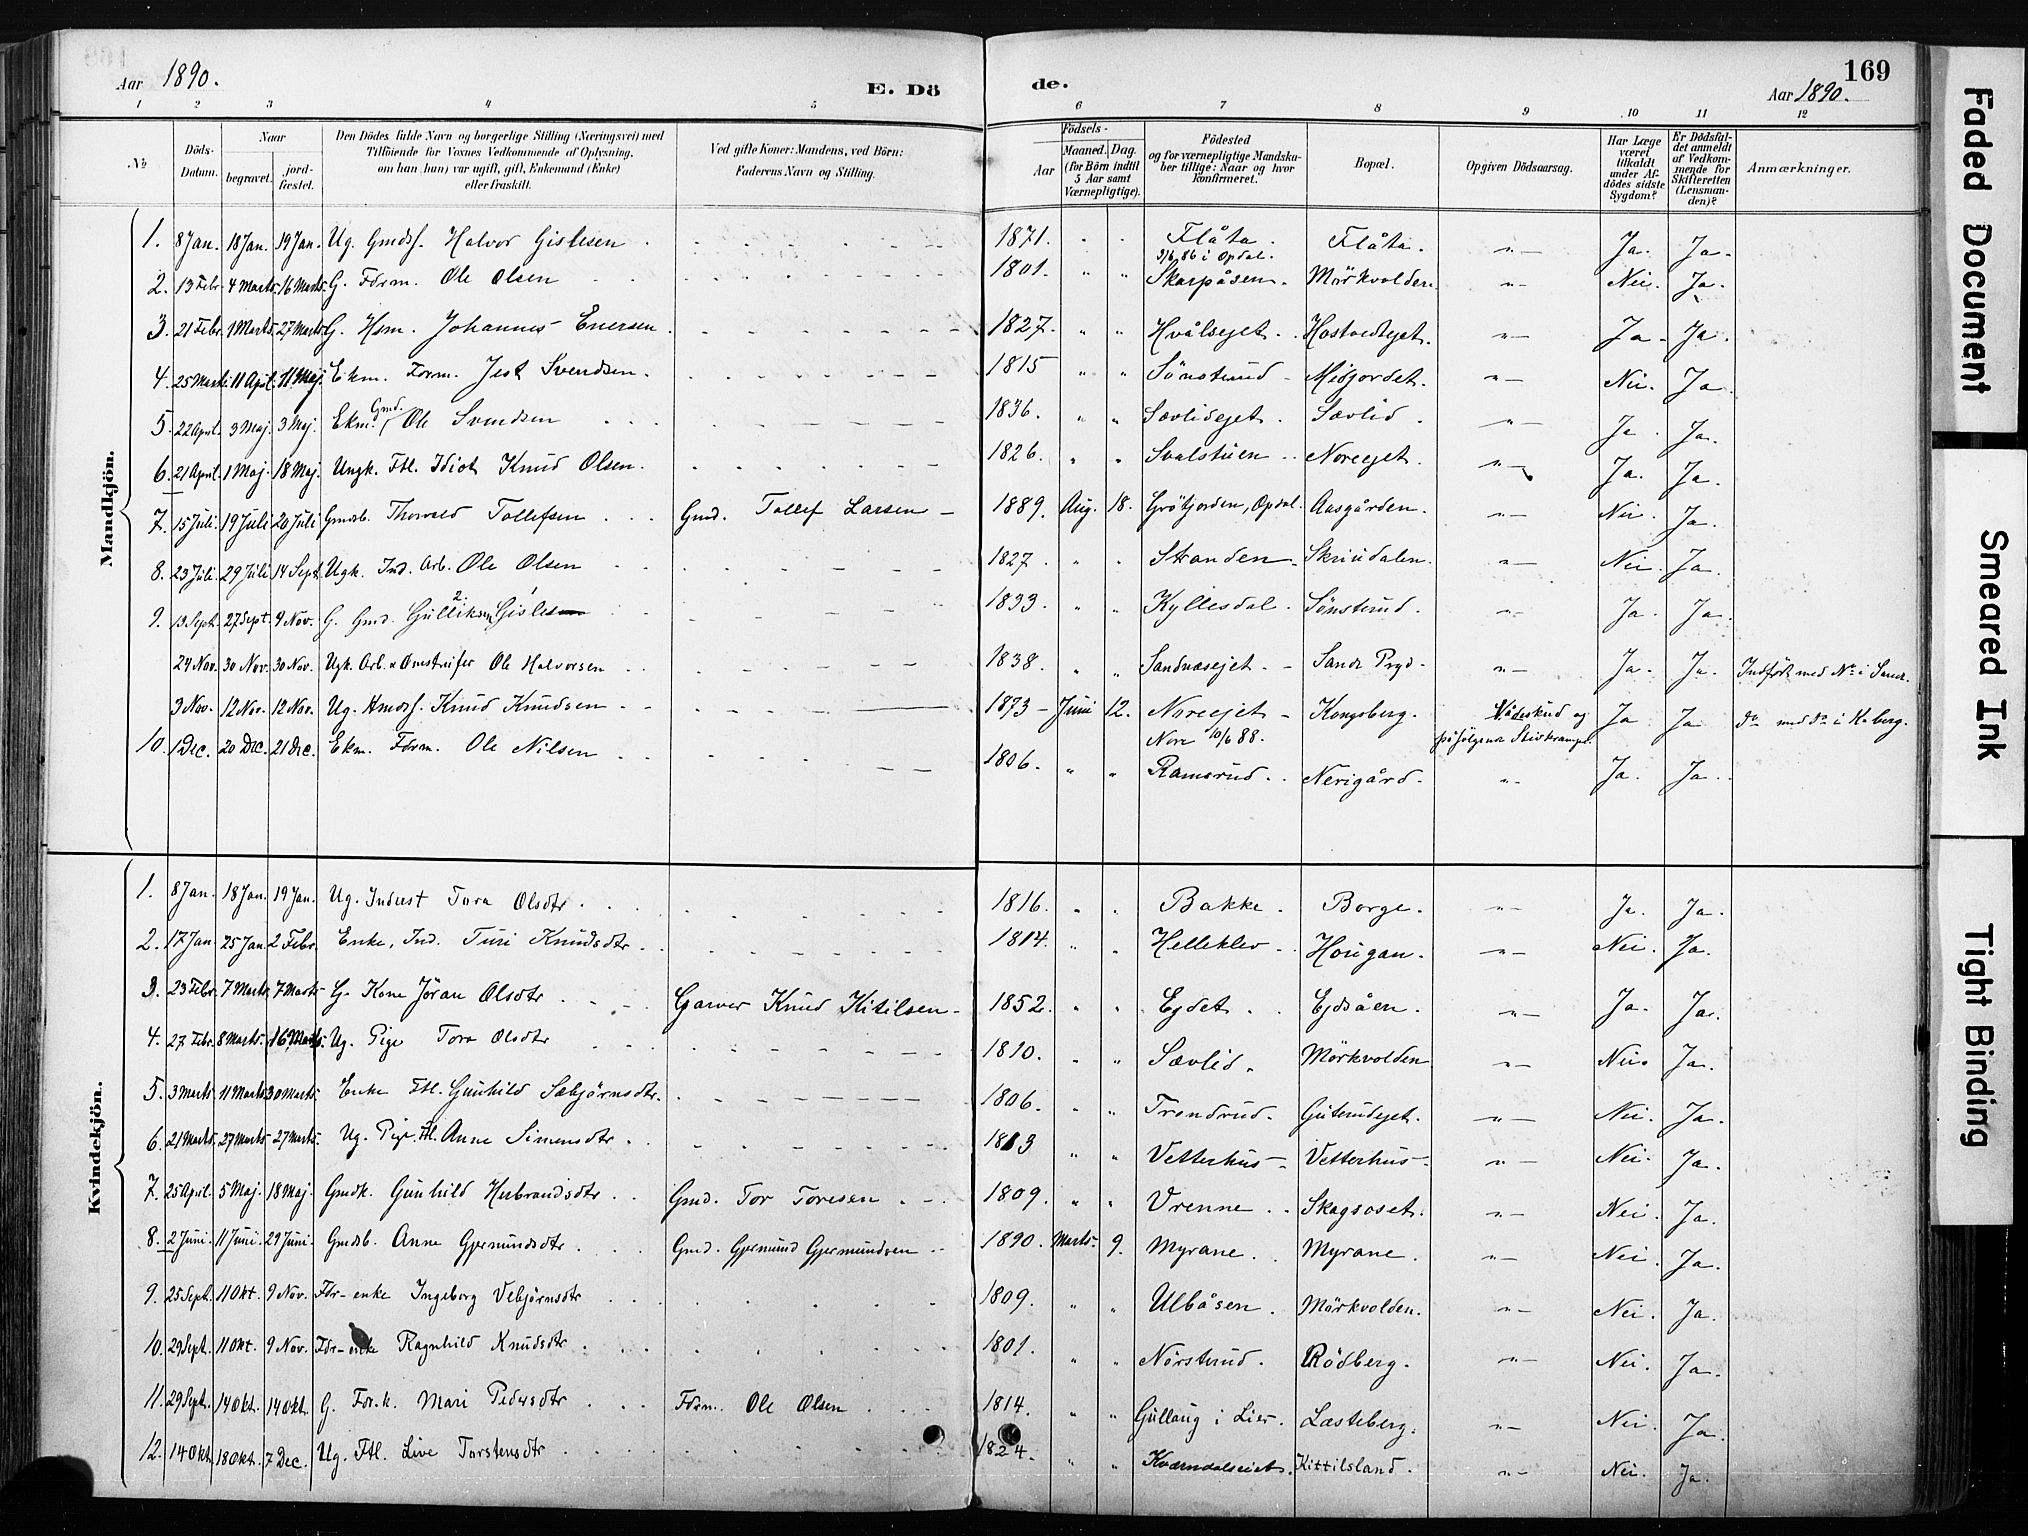 Aar 1890. E. Dö de. Aar 1890. 169
1 2 3 4 5 6 7 8 9 10 11 12
No
Döds-Datum.
Naar
begravet.
jordfæstet.
Den Dödes fulde Navn og borgerlige Stilling (Næringsvei) med
Tilföiende for Voxnes Vedkommende af Oplysning,
om han (hun) var ugift, gift, Enkemand (Enke)
eller fraskilt.
Ved gifte Koner: Mandens, ved Börn:
Faderens Navn og Stilling.
Födsels-
Aar
Maaned. Dag.
(for Börn indtil
5 Aar samt
Værnepligtige).
Födested
og for værnepligtige Mandska-
ber tillige: Naar og hvor
konfirmeret.
Bopæl.
Opgiven Dödsaarsag.
Har Læge
været
tilkaldt
under Af-
dödes sidste
Sygdom?
Er Dödsfal-
det anmeldt
af Vedkom-
mende for
Skifteretten
(Lensman-
den)?
Anmærkninger.
Mandkjön.
1. 8 Jan. 18 Jan. 19 Jan. Ug. Gmdsf. Halvor Gislesen 1871. Flåta. Flåta. "— Ja. Ja.
9/6 86 i Opdal.
2. 13 Febr. 4 Marts. 16 Marts. G. Fdrm. Ole Olsen 1801. " " Skarpåsen. Mörkvolden "— Nei. Ja.
3. 21 Febr. 1 Marts. 27 Marts G. Hsm. Johannes Enersen 1827. " " Hvålsejet. Hostvedtejet. "— Ja. Ja.
4. 25 Marts. 11 April. 11 Maj. Ekm. Fdrm. Jest Svendsen. 1815 " " Sönsterud Midjordet. "— Nei. Ja.
5. 22 April. 3 Maj. 3 Maj. Ekm. Gmd. Ole Svendsen 1836. " " Sævlidejet. Sævlid. "— Ja. Ja.
6. 21 April. 1 Maj. 18 Maj. Ungk. Ftl. Idiot Knud Olsen. 1826. " " Svalstuen Noreejet. "— Ja. Ja.
7. 15 Juli. 19 Juli 20 Juli Gmdsb. Thorvald Tollefsen Gmd. Tollef Larsen 1889. Aug. 18. Grötjorden, Opdal. Aasgården. "— Nei. Ja.
8. 23 Juli. 29 Juli 14 Sept. Ugk. Ind. Arb. Ole Olsen 1827. " " Stranden Skriudalen. "— Nei. Ja.
9. 13 Sept. 27 Sept. 9 Nov. G. Gmd. Gulliksen Gislesen 1833. " " Kyllesdal. Sönsterud. "— Ja. Ja.
24 Nov. 30 Nov. 30 Nov. Ugk. Arb. Omstreifer Ole Halvorsen 1838. " " Sandnæsejet. Sande Prgd. "— Ja. Ja. Indfört med No i Sande.
3 Nov. 12 Nov. 12 Nov. Ug. Hmdsf. Knud Knudsen 1873 Juni 12. Noreejet Kongsberg. Vådeskud og Ja Ja do med do i K.berg.
Nore 10/6 88. påfölgende Stivkrampe.
10. 1 Dec. 20 Dec. 21 Dec. Ekm. Fdrm. Ole Nilsen 1806. " " Ramsrud. Nerigård. "— Ja. Ja.
Kvindekjön.
1. 8 Jan. 18 Jan. 19 Jan. Ug. Inderst Tora Olsdtr. 1816. " " Bakke. Borge. "— Ja. Ja.
2. 17 Jan. 25 Jan. 2 Febr. Enke, Ind. Turi Knudsdtr. 1814. " " Helleklev Hougan. "— Nei. Ja.
3. 23 Febr. 7 Marts. 7 Marts G. Kone Jöran Olsdtr Garver Knud Kitilsen 1852. " " Ejdet. Ejdsåen. "— Ja. Ja.
4. 27 Febr. 8 Marts. 16 Marts. Ug. Pige Tora Olsdtr 1810. " " Sævlid. Mörkvolden "— Nei. Ja.
5. 3 Marts. 11 Marts. 30 Marts. Enke Ftl. Gunhild Sæbjörnsdtr. 1806. " " Trondrud. Guterudejet. "— Nei. Ja.
6. 21 Marts. 27 Marts 27 Marts. Ug. Pige. Ftl. Anne Simensdtr. 1813 " " Vetterhus. Vetterhus. "— Nei. Ja.
7. 25 April. 5 Maj. 18 Maj. Gmdk. Gunhild Herbrandsdtr. Gmd. Tor Toresen 1809. " " Vrenne. Skagsoset. "— Nei. Ja.
8. 2 Juni. 11 Juni. 29 Juni. Gmdsb. Anne Gjermundsdtr. Gmd. Gjermund Gjermundsen 1890. Marts. 9. Myrane. Myrane. "— Nei. Ja.
9. 25 Sept. 11 Okt. 9 Nov. Fdr-enke Ingeborg Vebjörnsdtr 1809. " " Ulbåsen. Mörkvolden. "— Nei. Ja.
10. 29 Sept. 11 Okt. 9 Nov. Fdr-enke Ragnhild Knudsdtr 1801. " " Nörsterud. Rödberg. "— Nei. Ja.
11. 29 Sept. 14 Okt. 14 Okt. G. Fdr.k. Mari Pedersdtr Fdrm. Ole Olsen 1814. " " Gullaug i Lier. Læsteberg. "— Nei. Ja.
12. 14 Okt. 18 Okt. 7 Dec. Ug. Ftl. Live Torstensdtr 1824. " " Kværndalseiet. Kittilsland. "— Nei. Ja.
Faded Document
Smeared Ink
Tight Binding